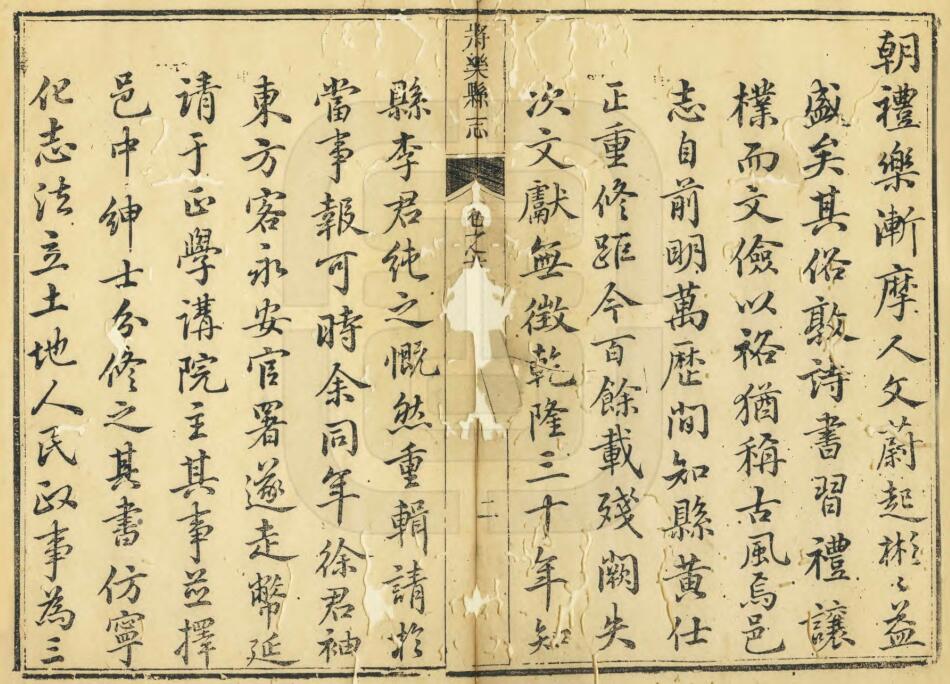 朝禮樂漸摩人文蔚起彬〻益
盛矣其俗敦詩書習禮讓
樸而文儉以裕猶稱古風焉邑
志自前明萬歷間知縣黄仕
正重修距今百餘載殘闕失
次文獻無徵乾隆三十年知
將樂縣志
二
縣李君純之慨然重輯請於
當事報可時余同年徐君袖
東方客永安官署遂走幣延
請于正學講院主其事並擇
邑中紳士分修之其書仿寧
化志法立土地人民政事為三